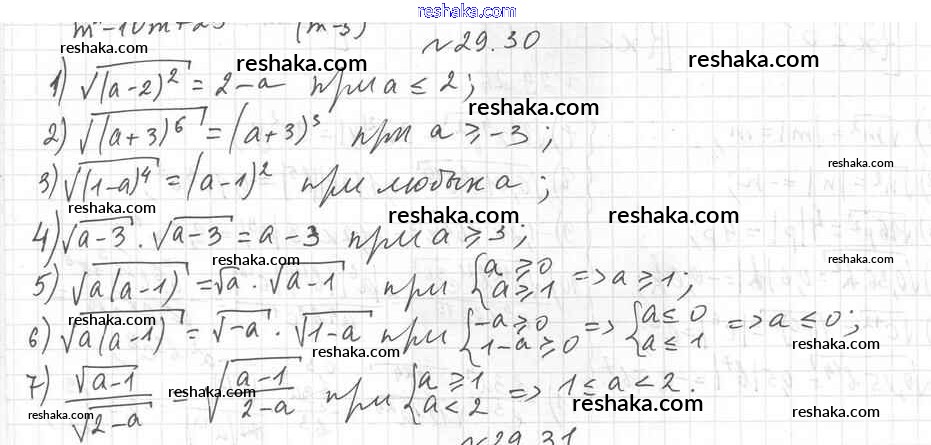 reshaka.com
m² - 10m + 25 (m-5)
reshaka.com
№29.30
reshaka.com
reshaka.com
1) √(a-2)² = 2-a при a ≤ 2;
reshaka.com
2) √(a+3)⁶ = (a+3)³ при a ≥ -3;
reshaka.com
reshaka.com
3) √(1-a)⁴ = (a-1)² при любых a;
reshaka.com
reshaka.com
reshaka.com
4) √a-3 · √a-3 = a-3 при a ≥ 3;
reshaka.com
5) √a(a-1) = √a · √a-1 при {a ≥ 0 a ≥ 1 => a ≥ 1;
6) √a(a-1) = √-a · √1-a при {-a ≥ 0 1-a ≥ 0 => {a ≤ 0 a ≤ 1 => a ≤ 0;
reshaka.com
reshaka.com
7) √a-1 / √2-a = √(a-1 / 2-a) при {a ≥ 1 a < 2 => 1 ≤ a < 2.
reshaka.com
reshaka.com
reshaka.com
reshaka.com
№29.31